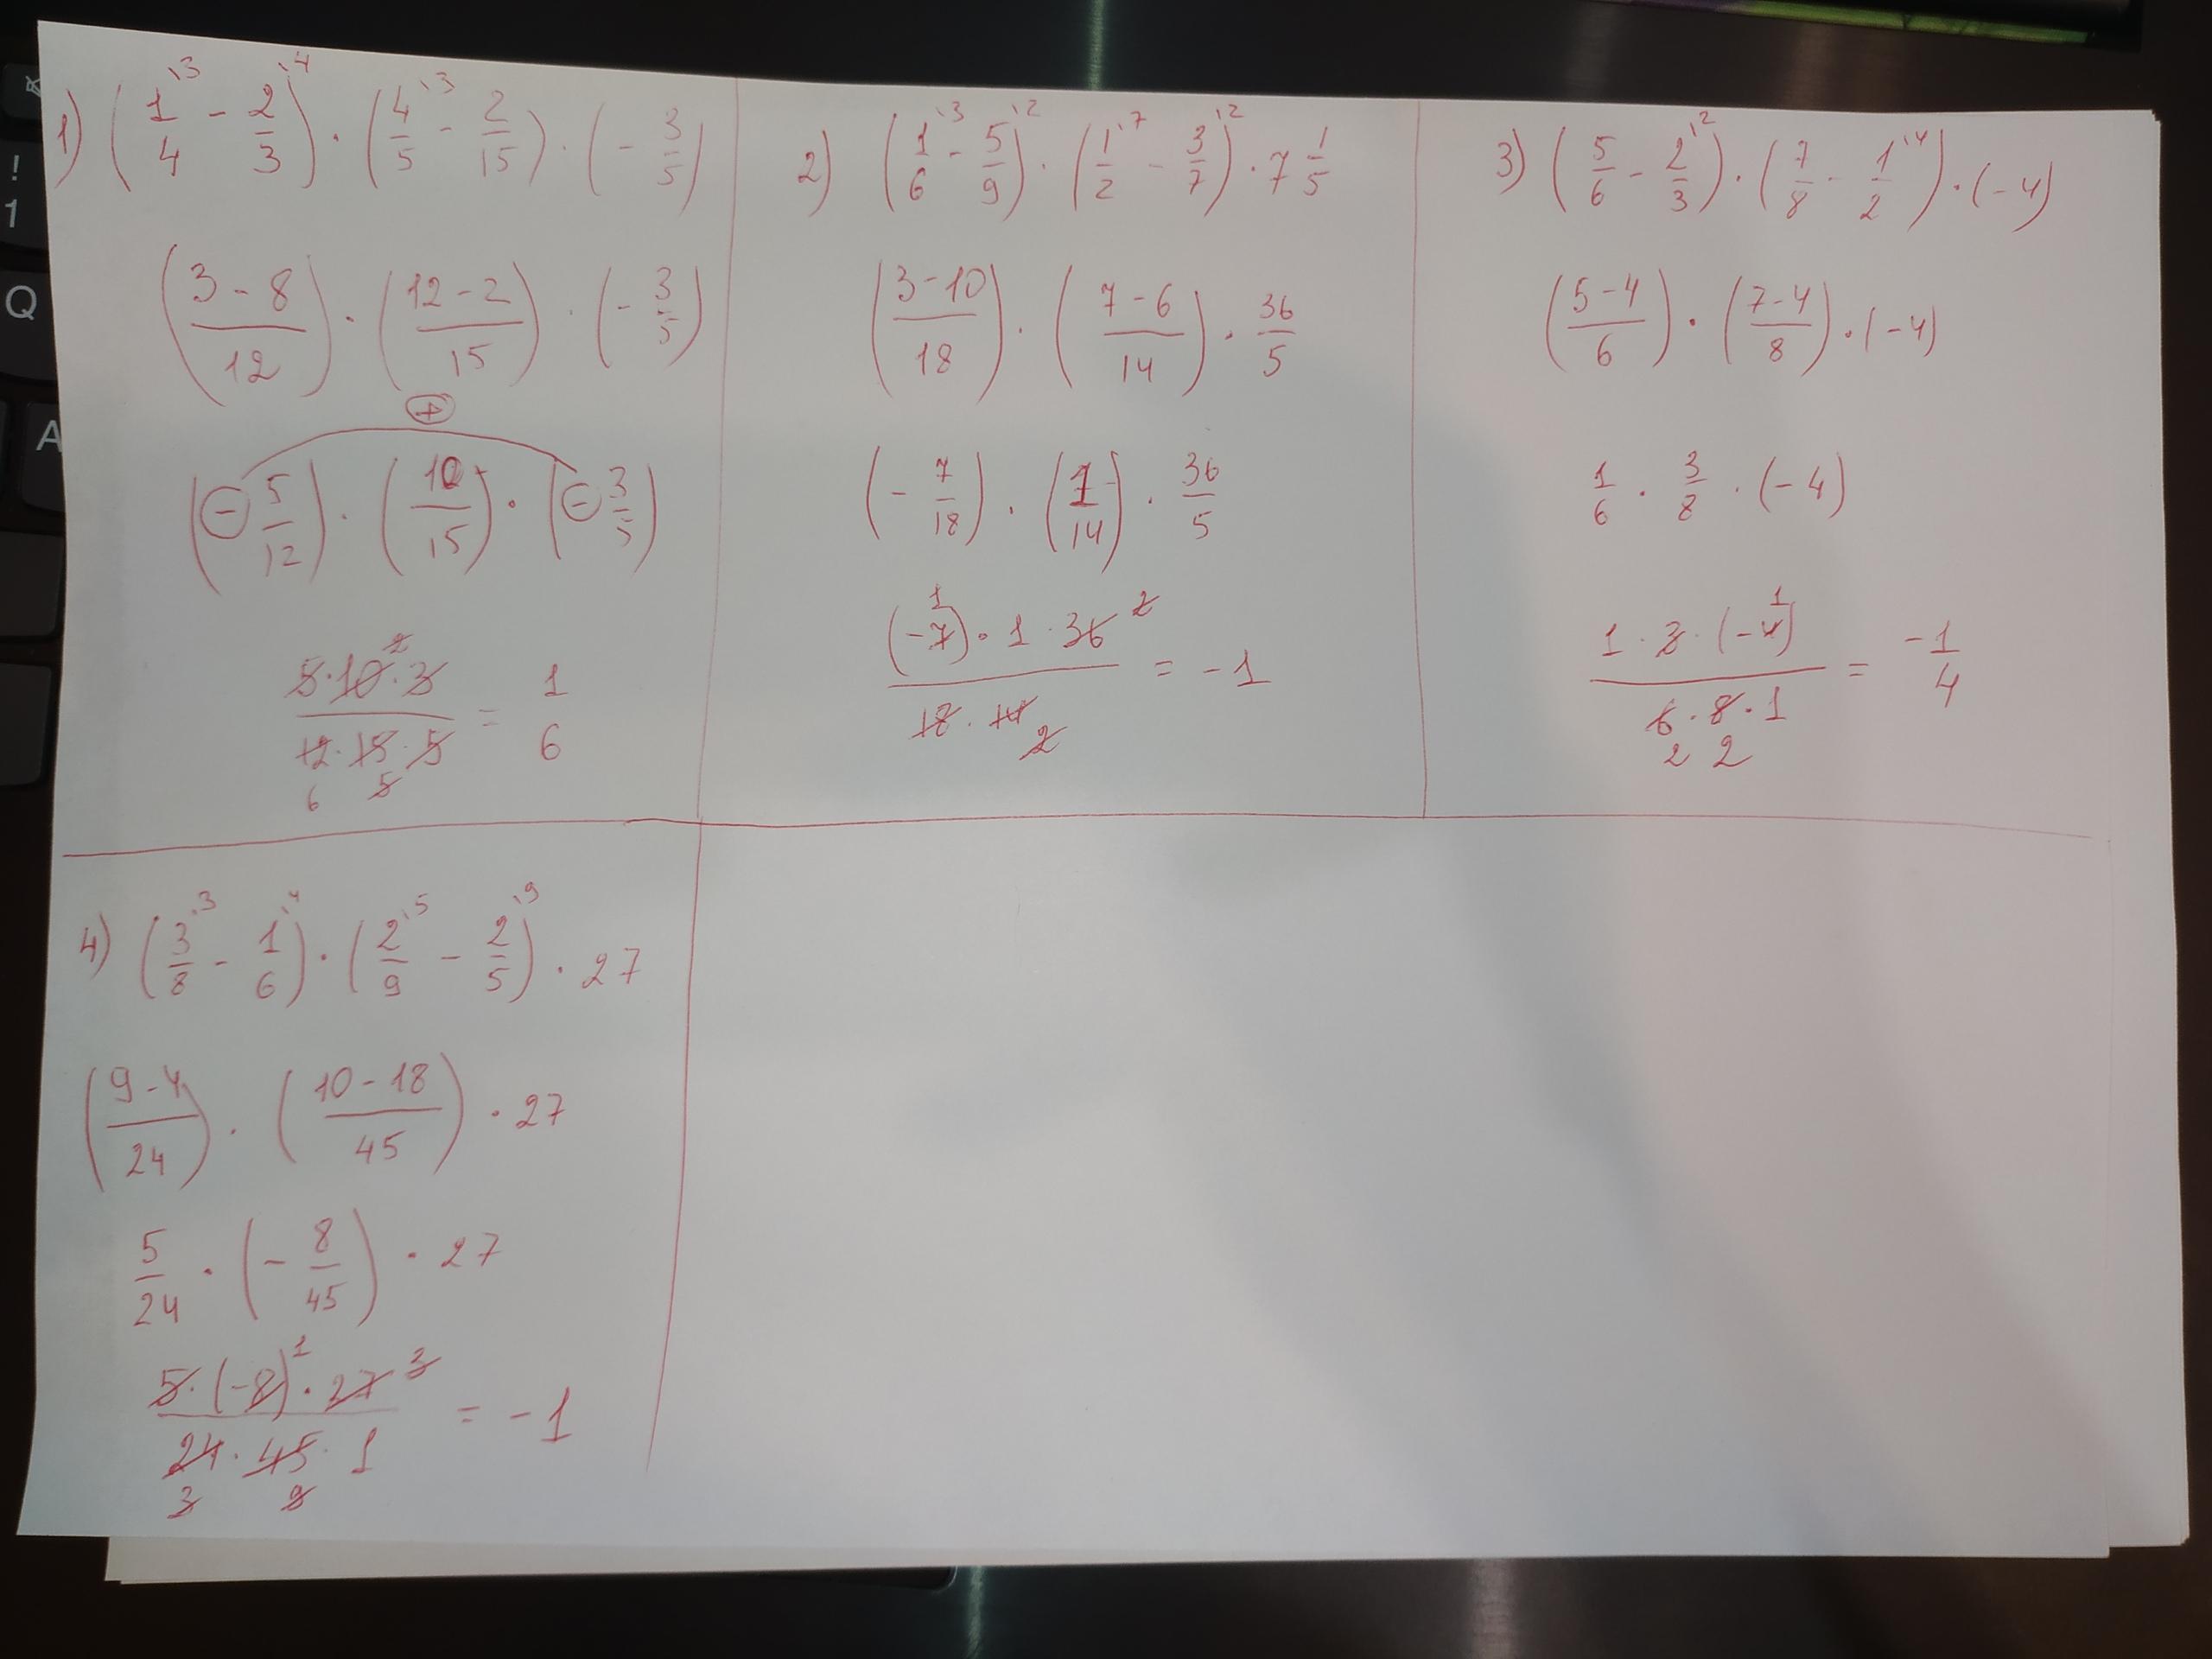 1) (1/4 \3 - 2/3 \4) · (4/5 \3 - 2/15) · (- 3/5)
((3 - 8)/12) · ((12 - 2)/15) · (- 3/5)
+
(- 5/12) · (10/15) · (- 3/5)
2
(5 · 10 · 3)/(12 · 15 · 5) = 1/6
6 5
2) (1/6 \3 - 5/9 \2) · (1/2 \7 - 3/7 \2) · 7 1/5
((3 - 10)/18) · ((7 - 6)/14) · 36/5
(- 7/18) · (1/14) · 36/5
1 2
((-7) · 1 · 36)/(18 · 14) = -1
2
3) (5/6 - 2/3 \2) · (7/8 - 1/2 \4) · (-4)
((5 - 4)/6) · ((7 - 4)/8) · (-4)
1/6 · 3/8 · (-4)
1
(1 · 3 · (-4))/(6 · 8 · 1) = -1/4
2 2
4) (3/8 \3 - 1/6 \4) · (2/9 \5 - 2/5 \9) · 27
((9 - 4)/24) · ((10 - 18)/45) · 27
5/24 · (- 8/45) · 27
1 3
(5 · (-8) · 27)/(24 · 45 · 1) = -1
3 9
! 1
Q
A